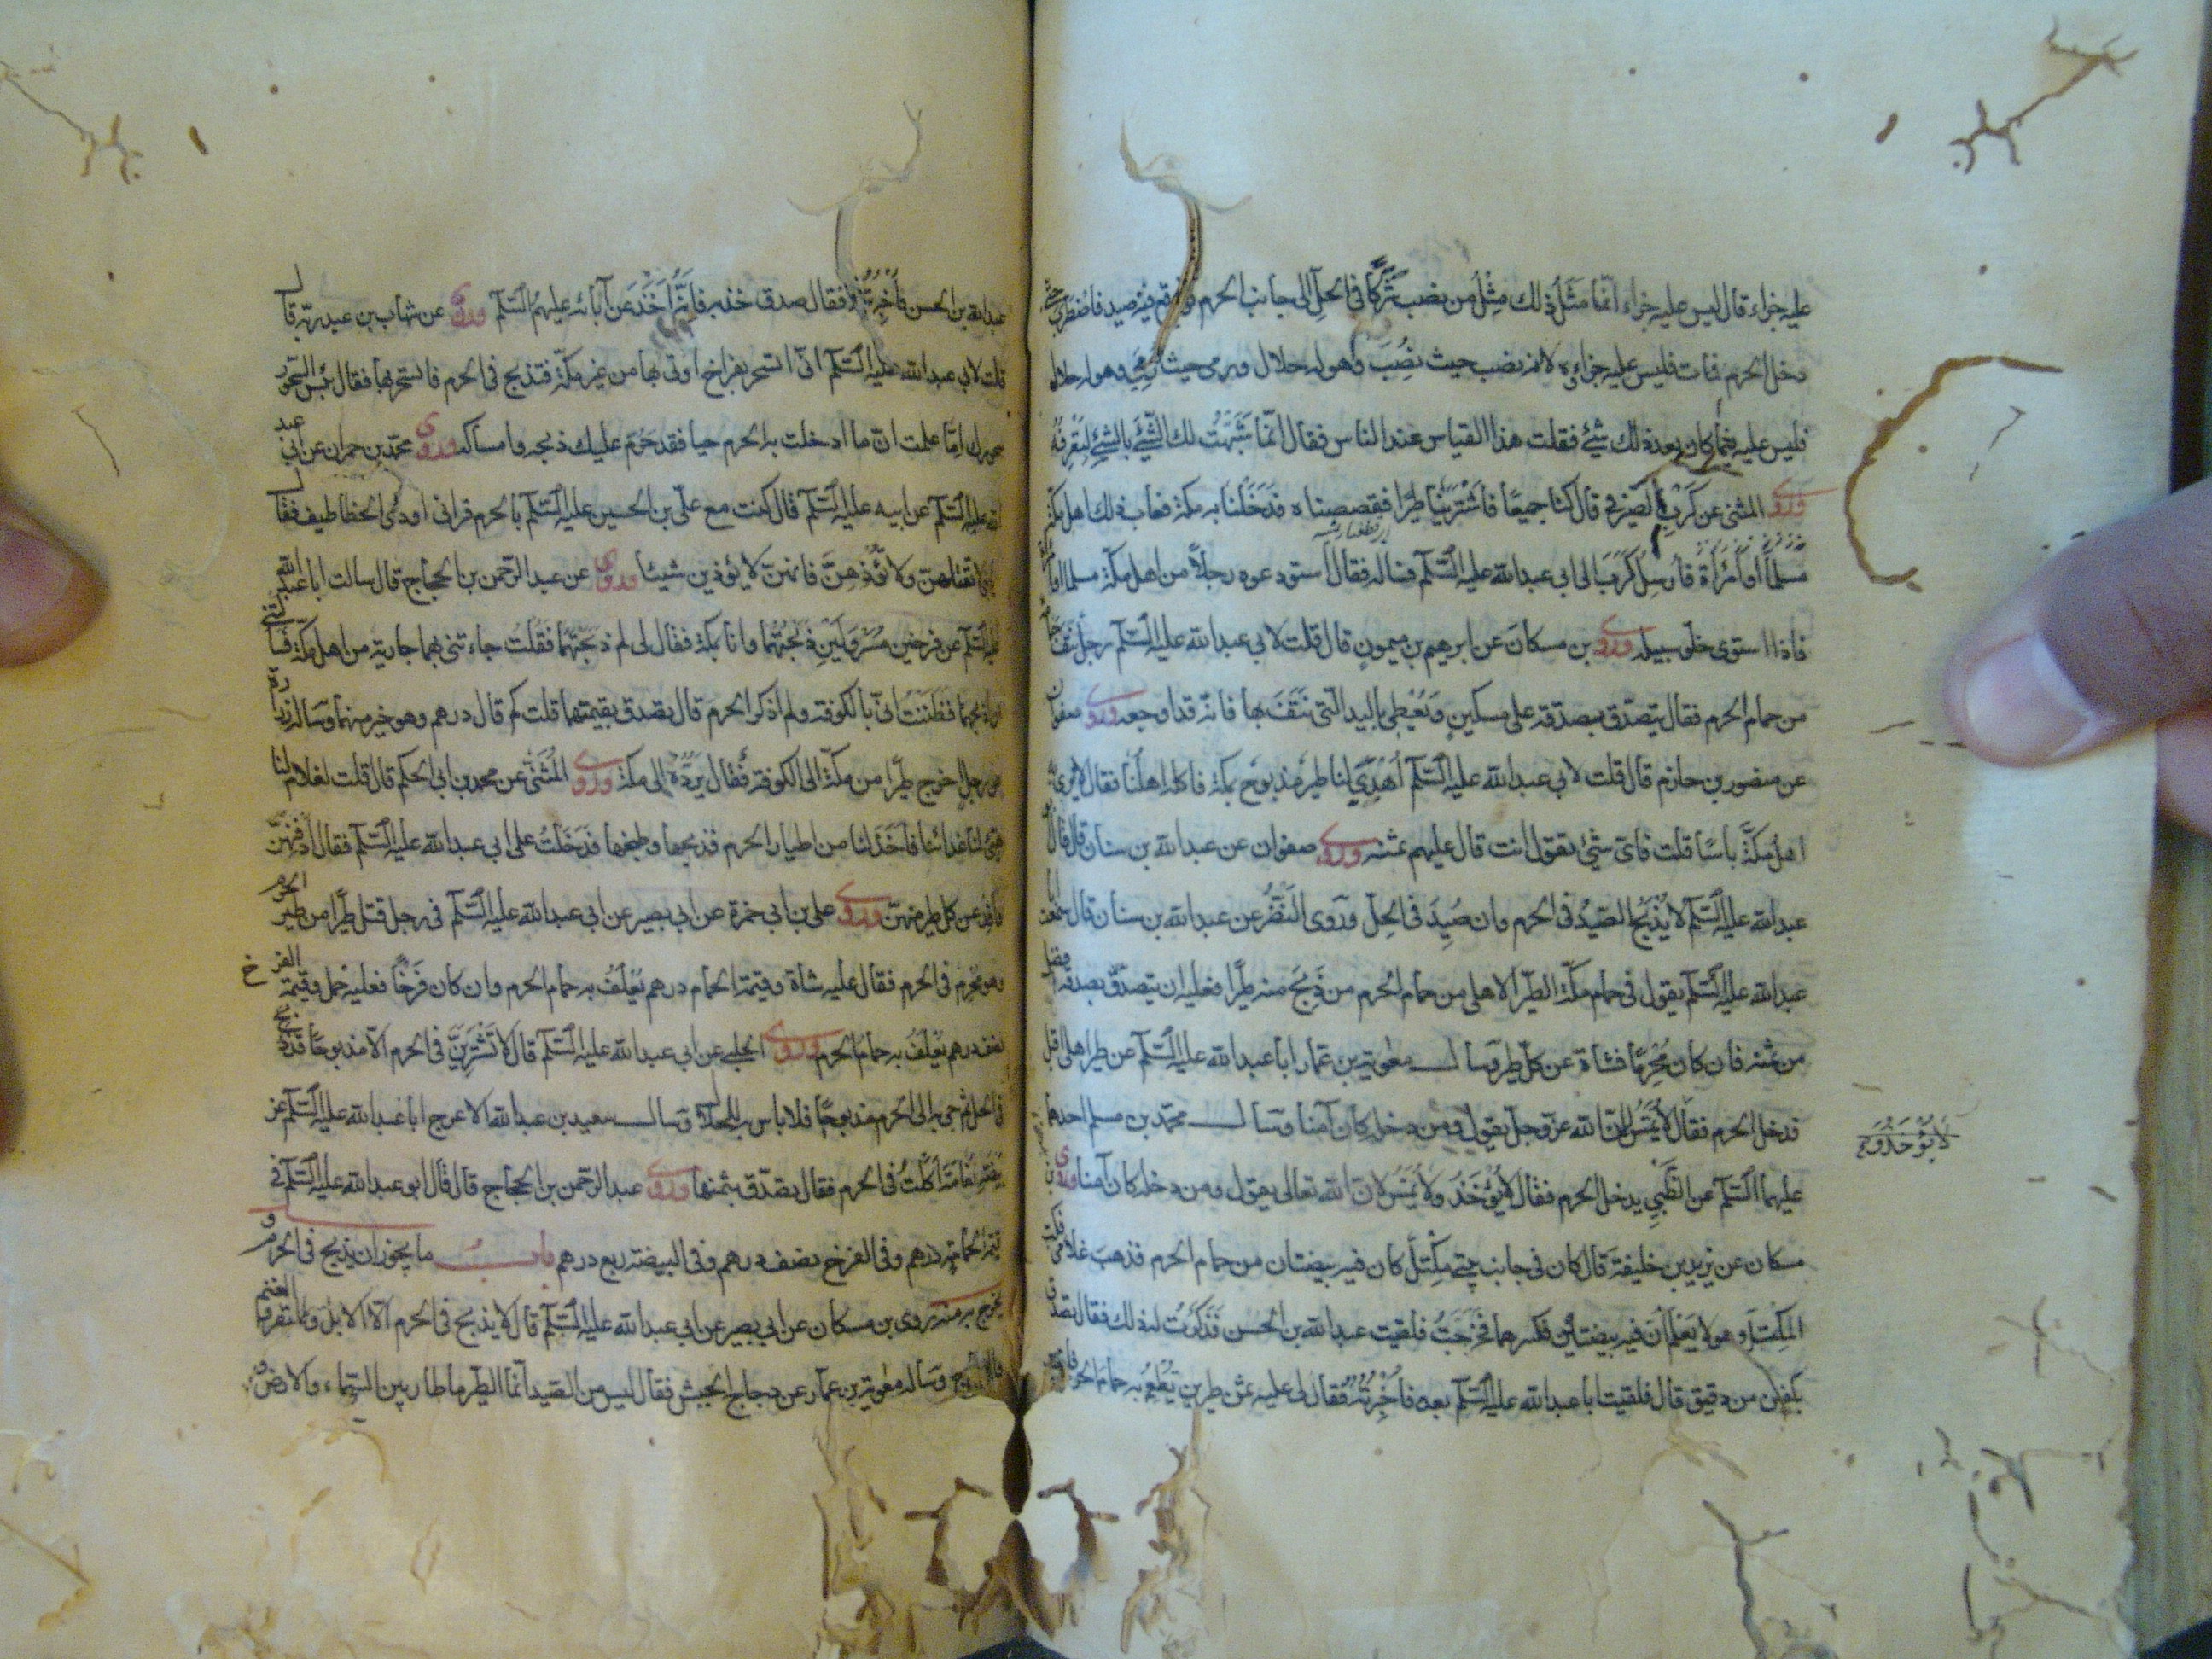 عليه جزاء قال ليس عليه جزاء انّما مَثَلُ ذلك مِثْلُ من نصب شَرَكًا في الحِلّ الى جانب الحرم فوقع فيه صيد فاضطرب حتّى
دخل الحرم فمات فليس عليه جزاءه لانه نصب حيث نصب وهو له حلال ورمى حيث رمى وهو له حلال
فليس عليه فيما كان بعد ذلك شئ فقلت هذا القياس عند الناس فقال انّما شَبَّهْتُ لك الشّئَ بالشئِ لِتَعْرِفَهُ
وروى المثنى عن كَرِبٍ الصّيرفي قال كنّا جميعًا فاشترينا طيرًا فقصصناه فدخلنا به مكة فعاب ذلك اهل مكة
مسلمًا او امرأة فأرسل كَرِبٌ الى ابي عبدالله عليه السّلم فساله فقال استودعوه رجلًا من اهل مكة مسلما او امرأة
فاذا استوى خلّوا سبيله وروى بن مسكان عن ابرهيم بن ميمون قال قلت لابي عبدالله عليه السّلم رجل نتف
من حمام الحرم فقال يتصدّق بصدقة على مسكين ويُعْطِي باليد التّي نتف بها فانّه قد اوجعه وروى صفوان
عن منصور بن حازم قال قلت لابي عبدالله عليه السّلم أُهْدِيَ لنا طير مذبوح بمكة فاكله اهلنا فقال لا يرى به
اهل مكّة باسًا قلت فاىّ شئ تقول انت قال عليهم ثمنه وروى صفوان عن عبدالله بن سنان قال قال
عبدالله عليه السّلم لا يُذْبَحُ الصّيدُ في الحرم وان صِيدَ في الحِلّ وروى النَّضْرُ عن عبدالله بن سنان قال سمعت ابا
عبدالله عليه السّلم يقول في حمام مكّة الطّير الاهلى من حمام الحرم من ذَبَحَ منه طيرًا فعليه ان يتصدّق بصدقة افضل
من ثمنه فان كان مُحْرِمًا فشاة عن كلّ طير وسال معوية بن عمار ابا عبدالله عليه السّلم عن طير اهلى اقبل
فدخل الحرم فقال لا يُمَسُّ لانّ الله عزّ وجلّ يقول ومن دخله كان آمنا وسال محمّد بن مسلم احدهما
لا يُؤخَذُ
عليهما السّلم عن الظَّبْيِ يدخل الحرم فقال لا يُؤْخَذُ ولا يُمَسُّ لان الله تعالى يقول ومن دخله كان آمنا وروى بن
مسكان عن يزيد بن خليفة قال كان في جانب بيتي مِكْتَلٌ كان فيه بيضتان من حمام الحرم فذهب غلامي فكبّ
المِكْتَلَ وهو لا يَعْلَمُ انّ فيه بيضتين فكسرهما فخرجتُ فلقيت عبدالله بن الحسن فذكرتُ له ذلك فقال تصدق
بكفّين من دقيق قال فلقيت ابا عبدالله عليه السّلم بعد فأخبرتُه فقال لي عليه ثمن طيرين يُعْلَفُ به حمام الحرم فلقيت
عبدالله بن الحسن فأخبرتُه فقال صدق خذ به فانّه اَخَذَ عن آبائه عليهم السّلم وروى عن شهاب بن عبد ربّه قال
قلت لابي عبدالله عليه السّلم انّى اتسحر بفراخ اوتى بها من غير مكّة فتذبح في الحرم فاتسحر بها فقال بئس السّحور
سحورك امّا علمت انّ ما ادخلت به الحرم حيا فقد حَرُم عليك ذبحه وامساكه وروى محمّد بن حمران عن ابي عبد
الله عليه السّلم عن ابيه عليه السّلم قال كنت مع علىّ بن الحسين عليه السّلم بالحرم فرآنى اوذى الخطاطيف فقال
يا بنىّ لا تقتلهنّ ولا تُؤْذِهِنَّ فانهنّ لا يؤذين شيئا وروى عن عبد الرّحمن بن الحجاج قال سالت ابا عبد الله
عليه السّلم عن فرخين مُسَرْوَلَيْنِ ذبحتُهُما وانا بمكّة فقال لى لم ذبحتهما فقلتُ جاءتنى بهما جارية من اهل مكّة فسالتنى
ان اذبحهما فظننتُ انّى بالكوفة ولم اذكر الحرم قال تصدق بقيمتهما قلت كم قال درهم وهو خير منهما وساله زرارة
عن رجل اخرج طيرًا من مكّة الى الكوفة فقال يردّه الى مكة وروى المثنى عن محمد بن ابي الحكم قال قلت لغلام لنا
هَيّئ لنا غداءنا فأخذ لنا من اطيار الحرم فذبحها وطبخها فدخلتُ على ابي عبدالله عليه السّلم فقال ادفنهنّ
وافْدِ عن كل طير منهنّ وروى على بن ابي حمزة عن ابي بصير عن ابي عبدالله عليه السّلم في رجل قتل طيرًا من طير الحرم
وهو محرم في الحرم فقال عليه شاة وقيمة الحمام درهم يُعْلَفُ به حمام الحرم وان كان فَرْخًا فعليه حمل وقيمة الفرخ
نصف درهم يُعْلَفُ به حمام الحرم وروى الحلبي عن ابي عبدالله عليه السّلم قال لا تَشْتَرِيَنَّ في الحرم الّا مذبوحًا قد ذبح
في الحل ثم جئ به الى الحرم مذبوحًا فلا باس به للحلال وسال سعيد بن عبدالله الاعرج ابا عبدالله عليه السّلم عن
بيضة نعامة اُكِلَتْ في الحرم فقال تصدّق بثمنها وروى عبد الرّحمن بن الحجاج قال قال ابو عبدالله عليه السّلم في
قيمة الحمامة درهم وفي الفرخ نصف درهم وفي البيضة ربع درهم باب ما يجوز ان يذبح في الحرم و
يخرج به منه روى بن مسكان عن ابي بصير عن ابي عبدالله عليه السّلم قال لا يذبح في الحرم الّا الابل والبقر والغنم
والدّجاج وساله معوية بن عمار عن دجاج الحبش فقال ليس من الصّيد انّما الطّير ما طار بين السّماء والارض